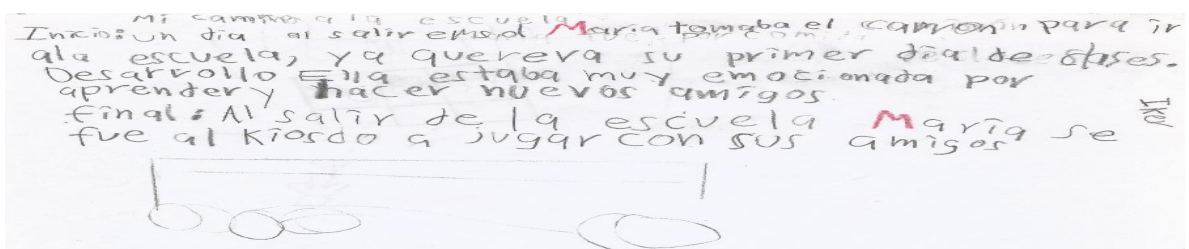 Mi camino a la escuela
Inicio: un día al salir el sol Maria tomaba el camión para ir
ala escuela, ya que era su primer día de clases.
Desarrollo Ella estaba muy emocionada por
aprender y hacer nuevos amigos
final: Al salir de la escuela María se
fue al Kiosdo a jugar con sus amigos